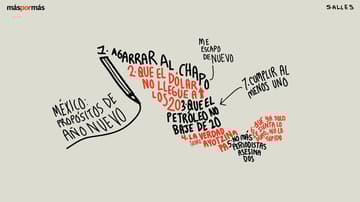 máspormás
SALLES
MÉXICO:
PROPÓSITOS DE
AÑO NUEVO
1. AGARRAR AL CHAPO
ME
ESCAPO
DE NUEVO
2. QUE EL DÓLAR
NO LLEGUE A
LOS 20
3. QUE EL
PETRÓLEO NO
BAJE DE 20
4. LA VERDAD
AYOTZINA
PA
5. NO MÁS
PERIODISTAS
ASESINA
DOS
7. CUMPLIR AL
MENOS UNO